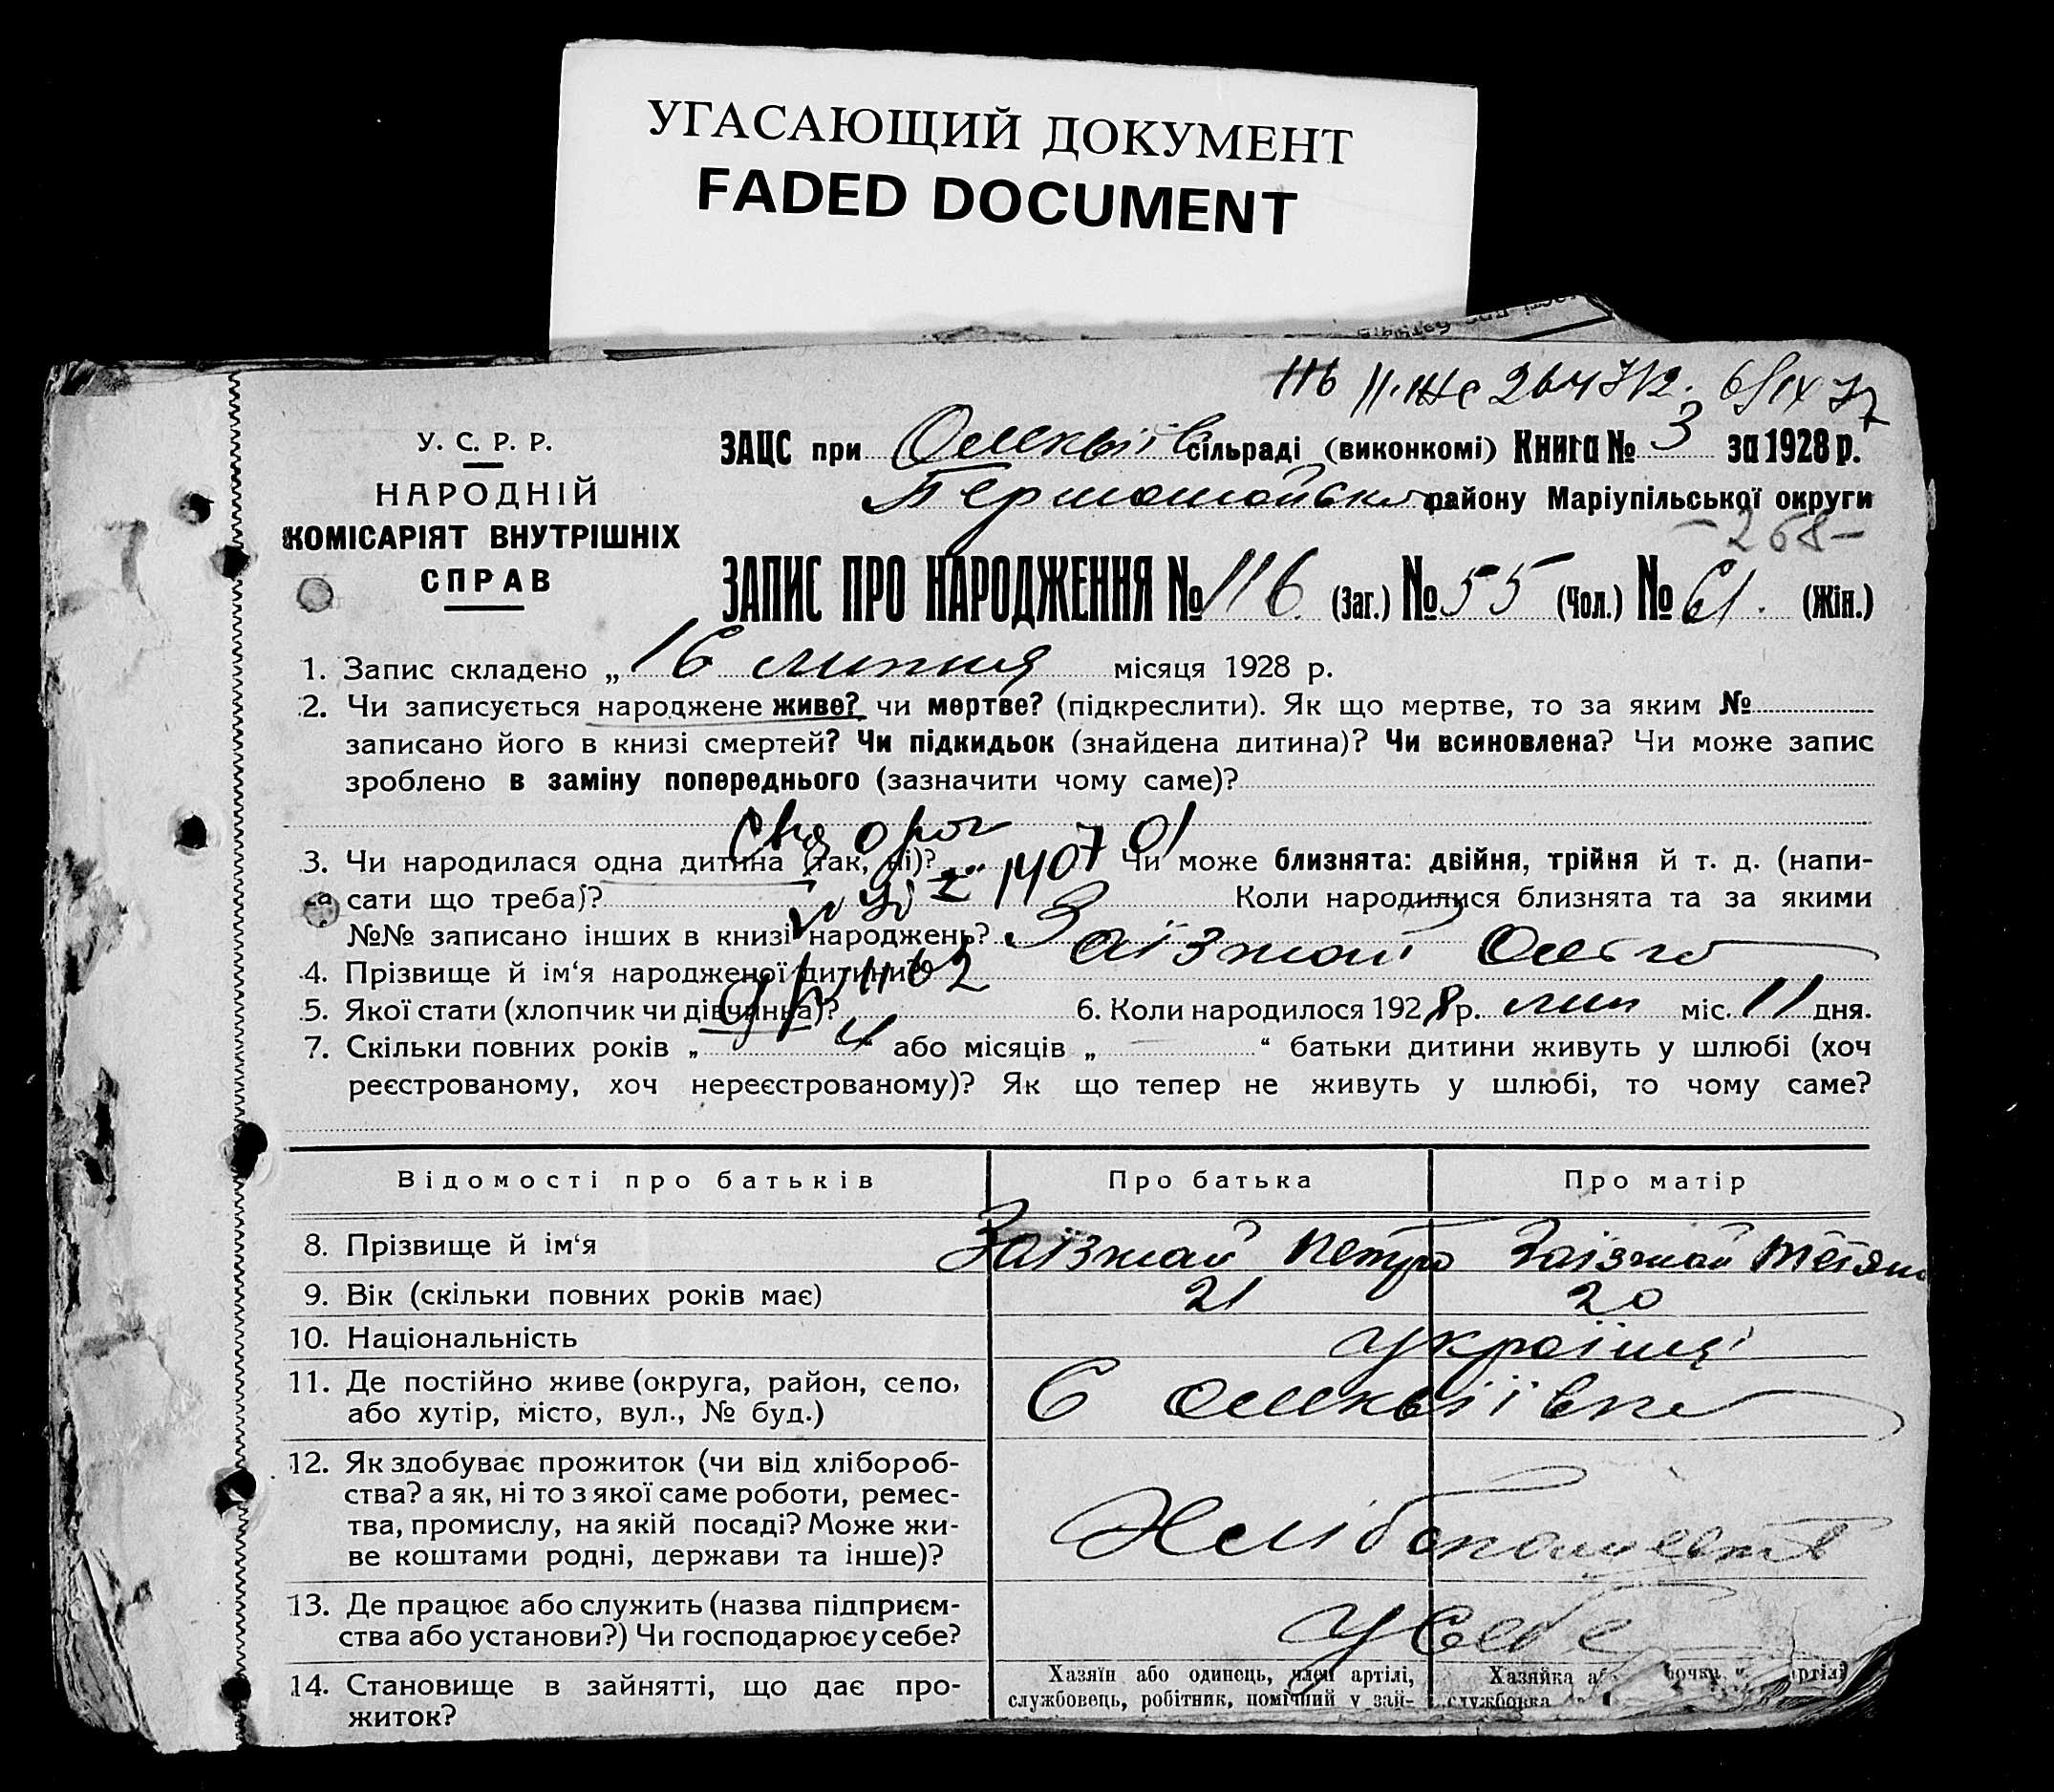 УГАСАЮЩИЙ ДОКУМЕНТ
FADED DOCUMENT
116
У. С. Р. Р.
НАРОДНІЙ
КОМІСАРІЯТ ВНУТРІШНІХ
СПРАВ
ЗАЦС при сільраді (виконкомі) Книга № 3 за 1928 р.
Першотравневого району Маріупільської округи
-268-
ЗАПИС ПРО НАРОДЖЕННЯ № 116 (Заг.) № 55 (Чол.) № 61. (Жін.)
1. Запис складено „ 16 липня місяця 1928 р.
2. Чи записується народжене живе? чи мертве? (підкреслити). Як що мертве, то за яким №
записано його в книзі смертей? Чи підкидьок (знайдена дитина)? Чи всиновлена? Чи може запис
зроблено в заміну попереднього (зазначити чому саме)?
3. Чи народилася одна дитина (так, ні)? Чи може близнята: двійня, трійня й т. д. (напи-
сати що треба)? Коли народилися близнята та за якими
№№ записано інших в книзі народжень?
4. Прізвище й ім‘я народженої дитини? Заїзжай Ольга
5. Якої стати (хлопчик чи дівчинка)? 6. Коли народилося 1928 р. лип міс. 11 дня.
7. Скільки повних років „ 4 “ або місяців „ “ батьки дитини живуть у шлюбі (хоч
реєстрованому, хоч нереєстрованому)? Як що тепер не живуть у шлюбі, то чому саме?
Відомості про батьків Про батька Про матір
8. Прізвище й ім‘я Заїзжай Петро Заїзжай Тетяна
9. Вік (скільки повних років має) 21 20
10. Національність українці
11. Де постійно живе (округа, район, село,
або хутір, місто, вул., № буд.) С
12. Як здобуває прожиток (чи від хлібороб-
ства? а як, ні то з якої саме роботи, ремес-
тва, промислу, на якій посаді? Може жи-
ве коштами родні, держави та інше)?
13. Де працює або служить (назва підприєм-
ства або установи?) Чи господарює у себе? У себе
14. Становище в зайнятті, що дає про-
житок?
Хазяїн або одинець, член артілі,
службовець, робітник, помічний у зай-
Хазяйка
службовка